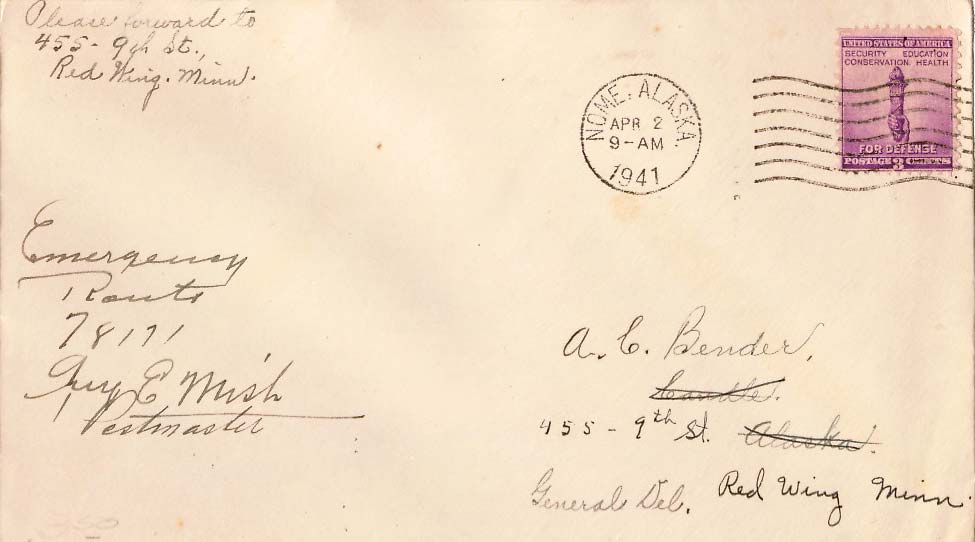 Please forward to
455 - 9th St.,
Red Wing. Minn.
NOME, ALASKA.
APR 2
9-AM
1941
UNITED STATES OF AMERICA
SECURITY EDUCATION
CONSERVATION HEALTH
FOR DEFENSE
POSTAGE 3 CENTS
Emergency
Route
78171
Guy E Mish
Postmaster
A. C. Bender,
Candle.
455 - 9th St. Alaska.
General Del. Red Wing Minn.